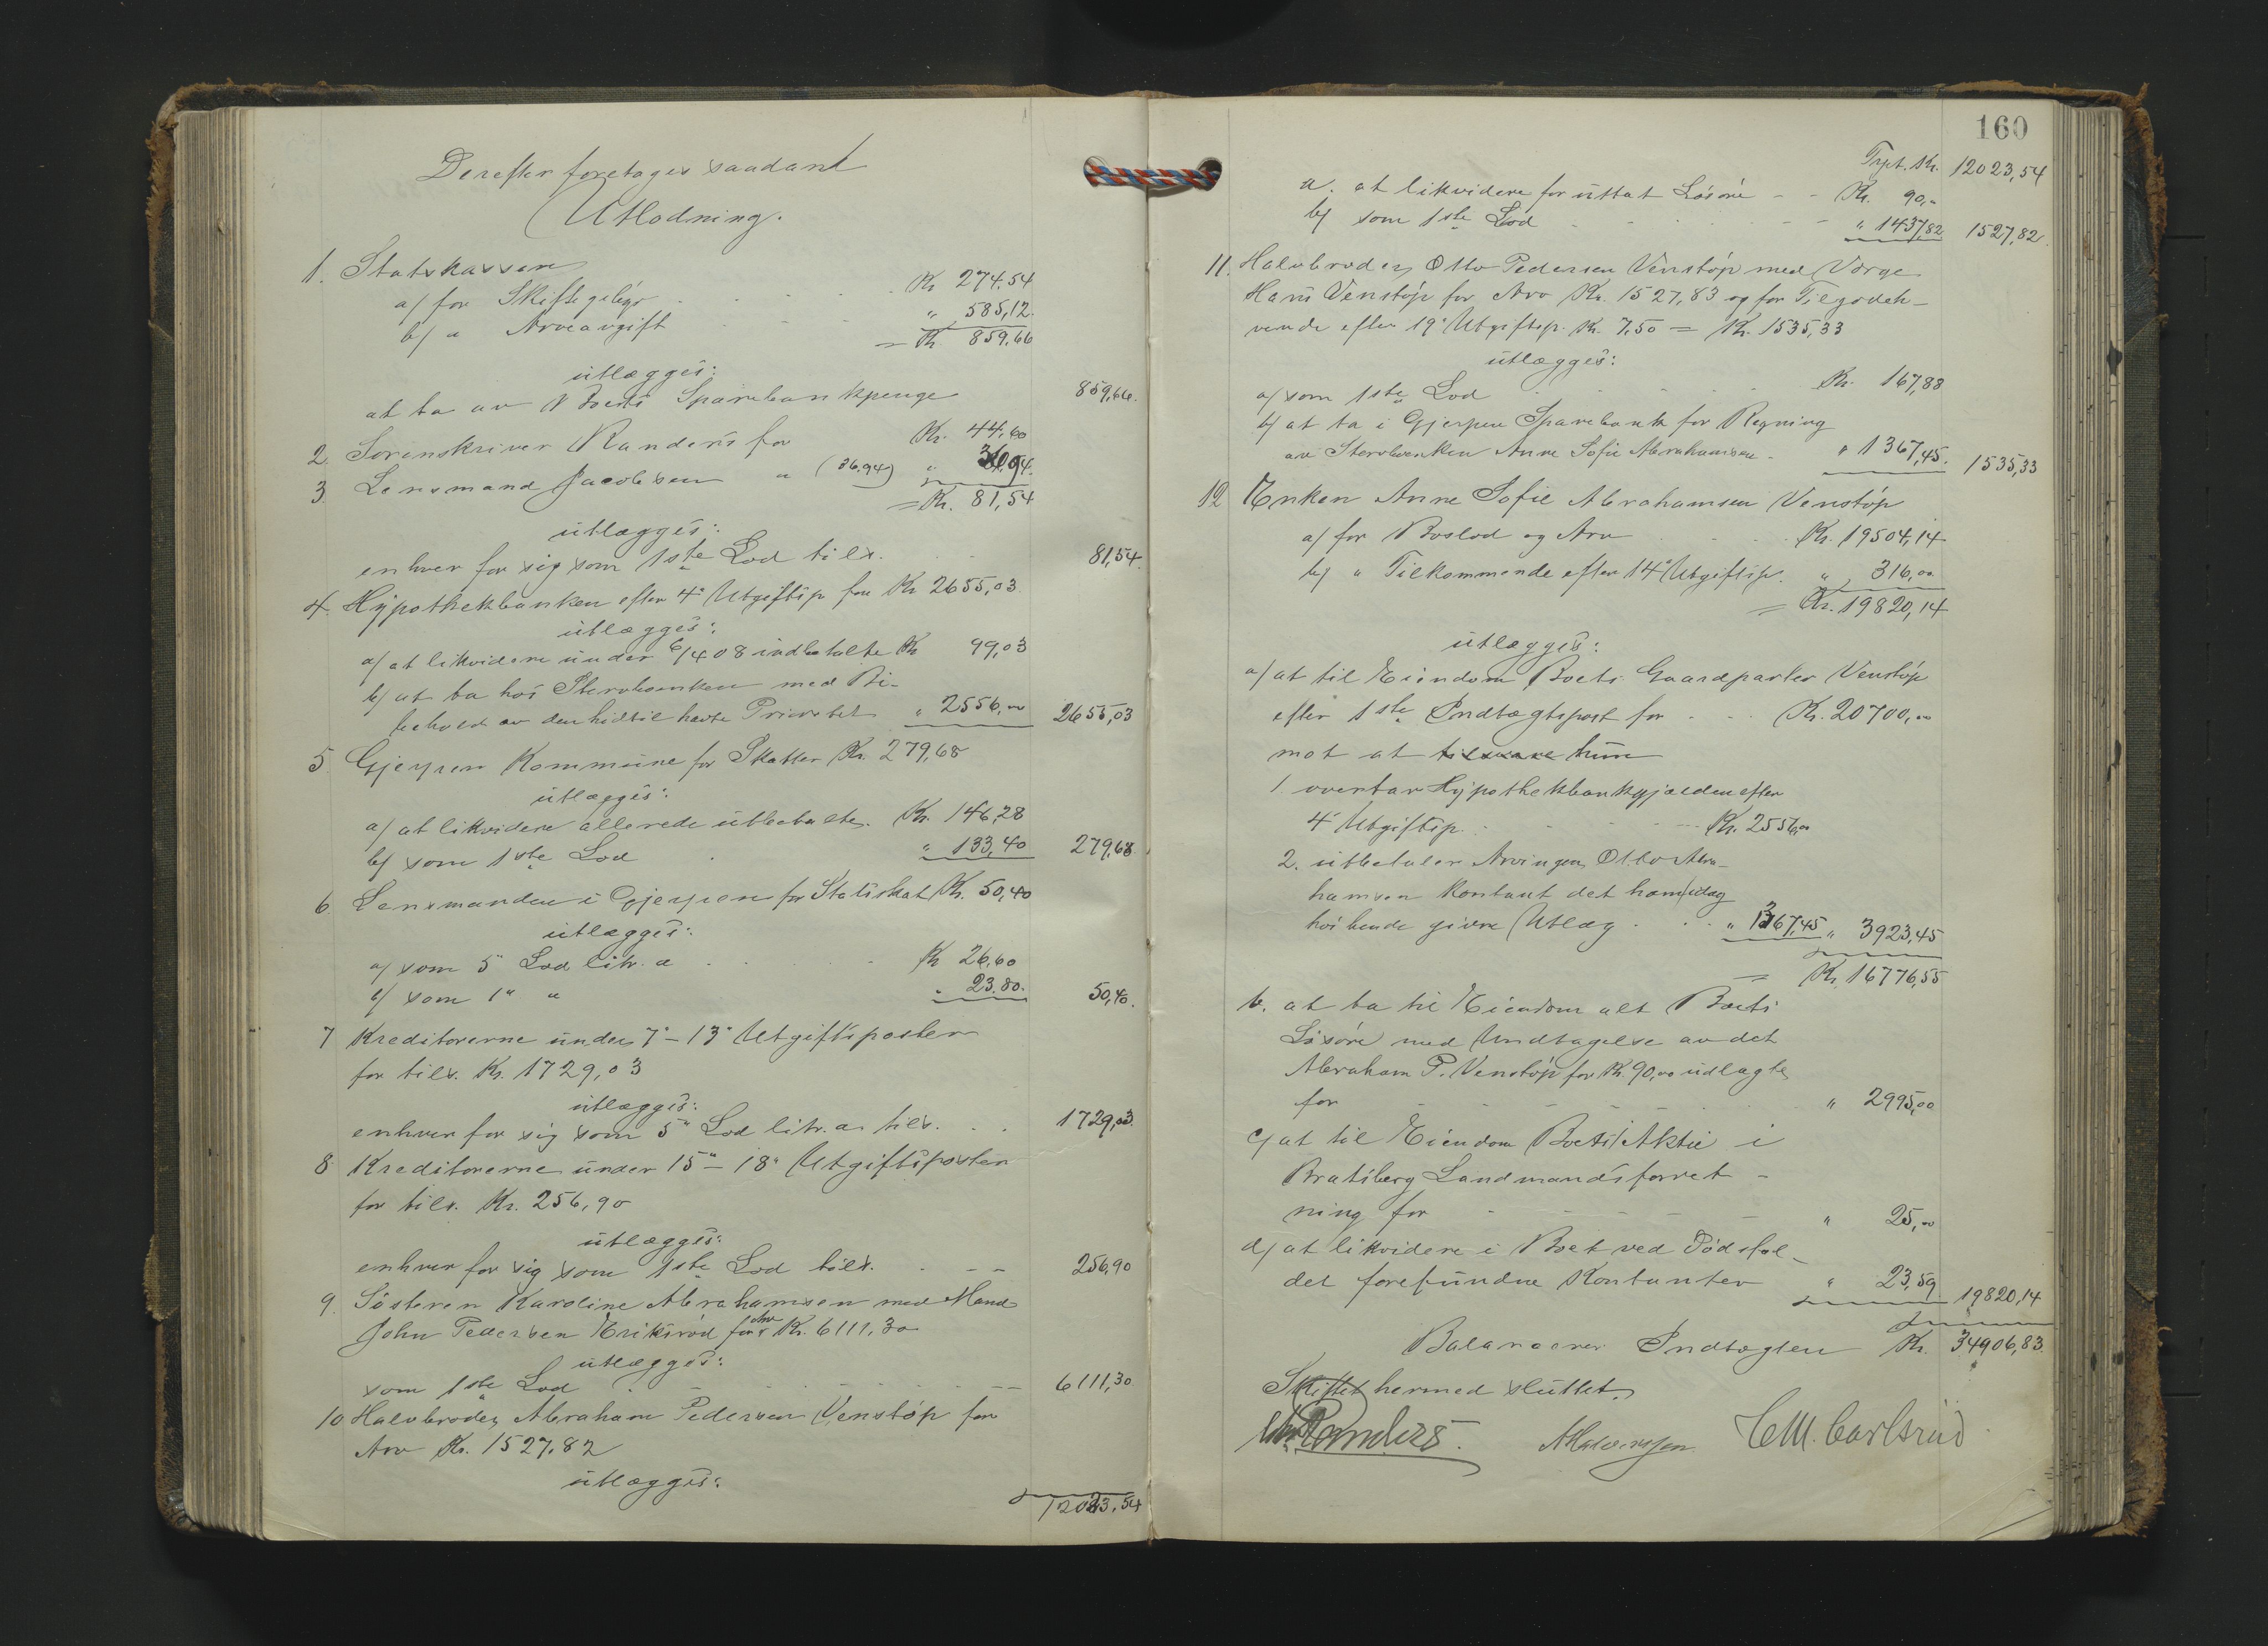 Derefter foretages saadant
Utlodning.
1. Statskassen
a/ for Skiftegebyr . . . Kr 274,54
b/ " Arveavgift . . . " 585,12.
= Kr. 859,66
utlægges:
at ta av Boets Sparebankpenge 859,66.
2. Sorenskriver Randers for Kr. 44,60
3. Lensmand Jacobsen " (36.94) " 36,94.
= Kr. 81,54
utlægges:
enhver for sig som 1ste Lod tils. 81,54.
4. Hypothekbanken efter 4" Utgiftsp for Kr 2655,03
utlægges:
a/ at likvidere under 6/4 08 indbetalte Kr 99,03
b/ at ta hos Sterboenken med Bi-
behold av den hidtil havte Prioritet " 2556,00 2655,03
5. Gjerpen Kommune for Skatter Kr. 279,68
utlægges:
a/ at likvidere allerede utbetalte. Kr. 146,28
b/ som 1ste Lod . " 133,40 279,68.
6. Lensmanden i Gjerpen for Statsskat Kr. 50,40
utlægges:
a/ som 5" Lod litr. a . . . Kr 26,60
b/ som 1" " " 23.80. 50,40.
7 Kreditorerne under 7" - 13" Utgiftsposter
for tils. Kr. 1729,03
utlægges:
enhver for sig som 5" Lod litr. a. tils. . . 1729,03.
8. Kreditorerne under 15" - 18" Utgiftsposter
for tils. Kr. 256,90
utlægges:
enhver for sig som 1ste Lod tils. . - - 256,90
9. Søsteren Karoline Abrahamsen med Mand
John Pedersen Eriksrød for Arv Kr. 6111,30
utlægges:
som 1ste Lod . . . 6111,30
10 Halvbroder Abraham Pedersen Venstøp for
Arv Kr. 1527.82
utlægges:
12023,54
160
Trpt. Kr. 12023,54
a. at likvidere for uttat Løsøre - - Kr. 90,-
b/ som 1ste Lod . . " 1437,82 1527,82.
11. Halvbroder Otto Pedersen Venstøp med Værge
Hans Venstøp for Arv Kr. 1527,83 og for Tilgodeh-
vende efter 19" Utgiftsp. Kr. 7,50 = Kr. 1535,33
utlægges:
a/ som 1ste Lod . . . Kr. 167,88
b/ at ta i Gjerpen Sparebank for Regning
av Sterboenken Anne Sofie Abrahamsen - " 1367,45. 1535,33
12 Enken Anne Sofie Abrahamsen Venstøp
a/ for Boslod og Arv . . . Kr. 19504,14
b/ " Tilkommende efter 14" Utgiftsp. " 316,00
= Kr. 19820,14
utlægges:
a/ at til Eiendom Boets Gaardparter Venstøp
efter 1ste Indtægtspost for . . . Kr. 20700,00
mot at tilsvare hun
1 overtar Hypothekbankgjælden efter
4" Utgiftsp. . . . Kr. 2556,00
2. utbetaler Arvingen Otto Abra-
hamsen kontant det ham idag
hos hende givne Utlæg . . . " 1367,45 " 3923,45
= Kr. 16776,55
b. at ta til Eiendom alt Boets
Løsøre med Undtagelse av det
Abraham P. Venstøp for Kr. 90,00 udlagte
for - - - " 2995,00
c/ at til Eiendom Boets Aktie i
Bratsberg Landmandsforret-
ning for - - - " 25,00
d/ at likvidere i Boet ved Dødsfal-
det forefundne Kontanter " 23,59. 19820,14
Balancerer Indtægten Kr. 34906,83.
Skiftet hermed sluttet.
Randers. A Halvorsen C M. Carlsrud